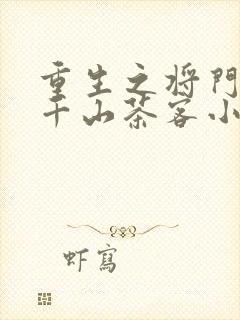 重生之将門
千山茶客小
虾寫